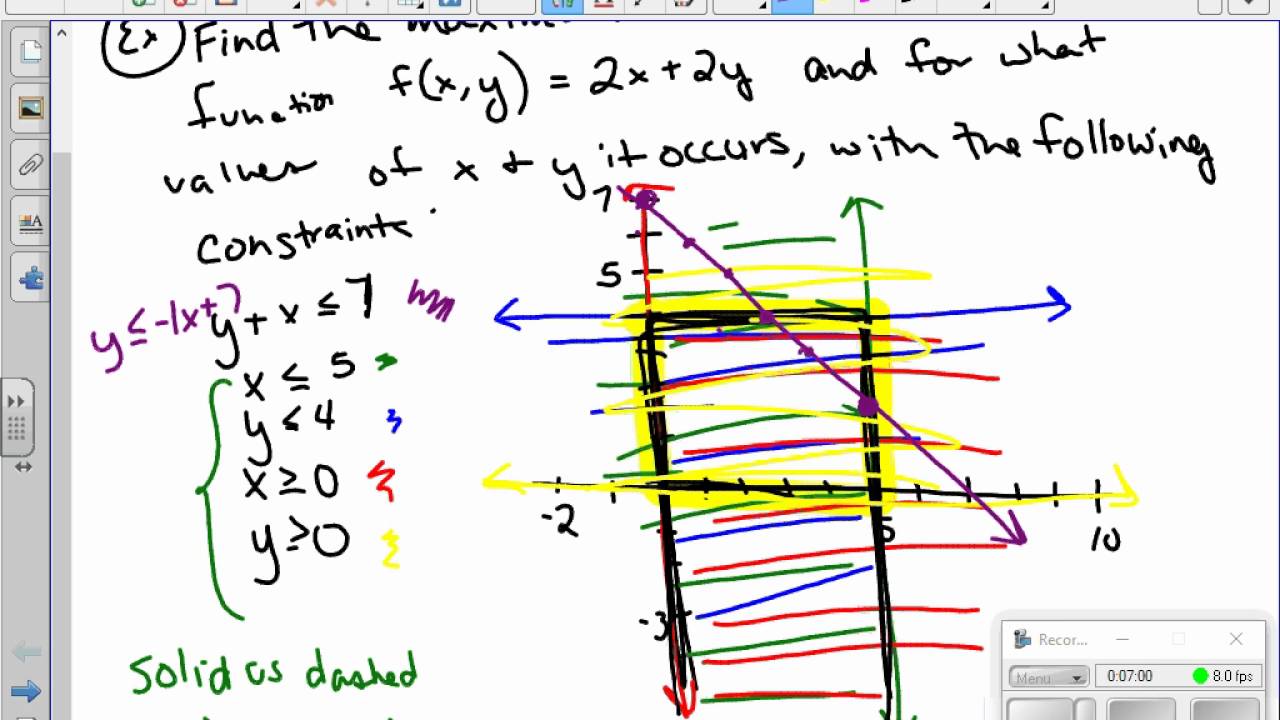 Ex Find the
function f(x,y) = 2x+2y and for what
values of x + y it occurs, with the following
constraints
7
5
y ≤ -1x+7
y + x ≤ 7
x ≤ 5
y ≤ 4
x ≥ 0
y ≥ 0
-2
5
10
-3
solid vs dashed
Recor...
Menu
0:07:00
8.0 fps